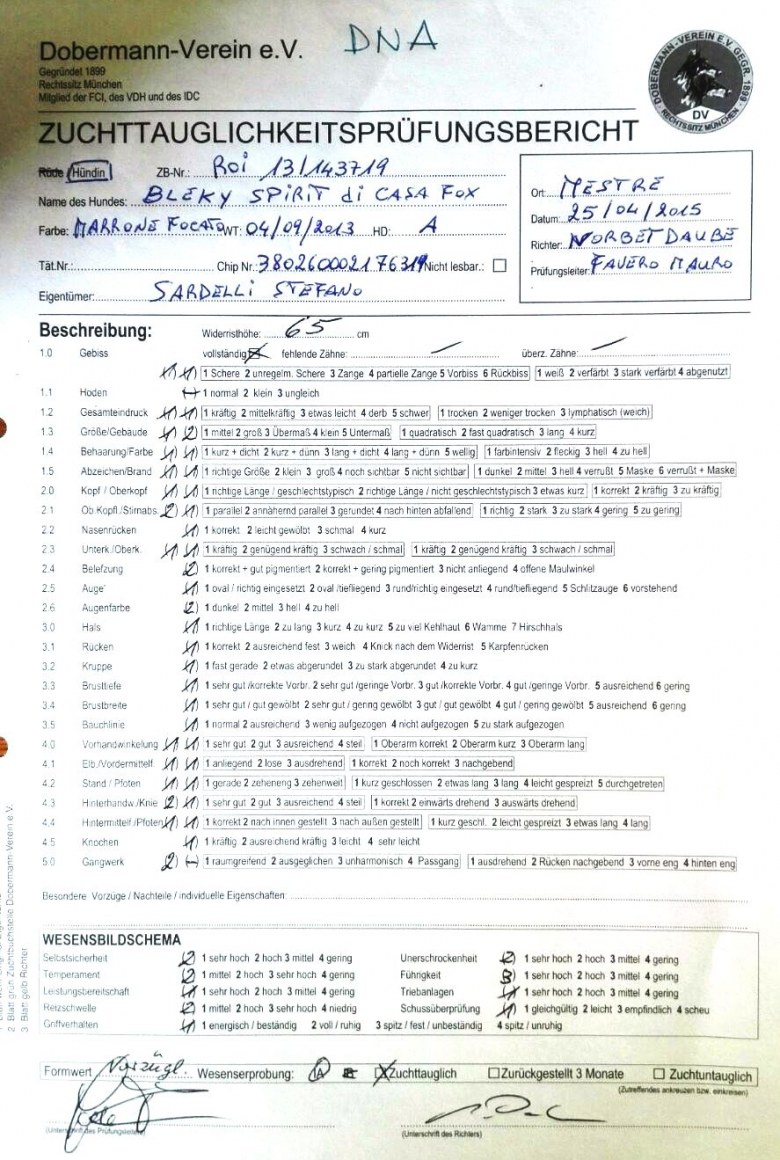 DNA
Dobermann-Verein e.V.
Gegründet 1899
Rechtssitz München
Mitglied der FCI, des VDH und des IDC
DOBERMANN-VEREIN E.V. GEGR. 1899
DV
RECHTSSITZ MÜNCHEN
ZUCHTTAUGLICHKEITSPRÜFUNGSBERICHT
Rüde / Hündin ZB-Nr.: ROI 13/143719
Name des Hundes: BLEKY SPIRIT di CASA FOX
Farbe: MARRONE FOCATO WT: 04/09/2013 HD: A
Tät.Nr.: Chip Nr. 380260002176319 Nicht lesbar.: ☐
Eigentümer: SARDELLI STEFANO
Ort: MESTRE
Datum: 25/04/2015
Richter: NORBET DAUBE
Prüfungsleiter: FAVERO MAURO
Beschreibung: Widerristhöhe: 65 cm
1.0 Gebiss vollständig ☒ fehlende Zähne: — überz. Zähne: —
1 1 1 Schere 2 unregelm. Schere 3 Zange 4 partielle Zange 5 Vorbiss 6 Rückbiss 1 weiß 2 verfärbt 3 stark verfärbt 4 abgenutzt
1.1 Hoden 1 normal 2 klein 3 ungleich
1.2 Gesamteindruck 1 1 1 kräftig 2 mittelkräftig 3 etwas leicht 4 derb 5 schwer 1 trocken 2 weniger trocken 3 lymphatisch (weich)
1.3 Größe/Gebäude 1 2 1 mittel 2 groß 3 Übermaß 4 klein 5 Untermaß 1 quadratisch 2 fast quadratisch 3 lang 4 kurz
1.4 Behaarung/Farbe 1 1 1 kurz + dicht 2 kurz + dünn 3 lang + dicht 4 lang + dünn 5 wellig 1 farbintensiv 2 fleckig 3 hell 4 zu hell
1.5 Abzeichen/Brand 1 1 1 richtige Größe 2 klein 3 groß 4 noch sichtbar 5 nicht sichtbar 1 dunkel 2 mittel 3 hell 4 verrußt 5 Maske 6 verrußt + Maske
2.0 Kopf / Oberkopf 1 1 1 richtige Länge / geschlechtstypisch 2 richtige Länge / nicht geschlechtstypisch 3 etwas kurz 1 korrekt 2 kräftig 3 zu kräftig
2.1 Ob.Kopfl./Stirnabs. 2 1 1 parallel 2 annähernd parallel 3 gerundet 4 nach hinten abfallend 1 richtig 2 stark 3 zu stark 4 gering 5 zu gering
2.2 Nasenrücken 1 1 korrekt 2 leicht gewölbt 3 schmal 4 kurz
2.3 Unterk./Oberk. 1 1 1 kräftig 2 genügend kräftig 3 schwach / schmal 1 kräftig 2 genügend kräftig 3 schwach / schmal
2.4 Belefzung 2 1 korrekt + gut pigmentiert 2 korrekt + gering pigmentiert 3 nicht anliegend 4 offene Maulwinkel
2.5 Auge 1 1 oval / richtig eingesetzt 2 oval /tiefliegend 3 rund/richtig eingesetzt 4 rund/tiefliegend 5 Schlitzauge 6 vorstehend
2.6 Augenfarbe 2 1 dunkel 2 mittel 3 hell 4 zu hell
3.0 Hals 1 1 richtige Länge 2 zu lang 3 kurz 4 zu kurz 5 zu viel Kehlhaut 6 Wamme 7 Hirschhals
3.1 Rücken 1 1 korrekt 2 ausreichend fest 3 weich 4 Knick nach dem Widerrist 5 Karpfenrücken
3.2 Kruppe 1 1 fast gerade 2 etwas abgerundet 3 zu stark abgerundet 4 zu kurz
3.3 Brusttiefe 1 1 sehr gut /korrekte Vorbr. 2 sehr gut /geringe Vorbr. 3 gut /korrekte Vorbr. 4 gut /geringe Vorbr. 5 ausreichend 6 gering
3.4 Brustbreite 1 1 sehr gut / gut gewölbt 2 sehr gut / gering gewölbt 3 gut / gut gewölbt 4 gut / gering gewölbt 5 ausreichend 6 gering
3.5 Bauchlinie 1 1 normal 2 ausreichend 3 wenig aufgezogen 4 nicht aufgezogen 5 zu stark aufgezogen
4.0 Vorhandwinkelung 1 1 1 sehr gut 2 gut 3 ausreichend 4 steil 1 Oberarm korrekt 2 Oberarm kurz 3 Oberarm lang
4.1 Elb./Vordermittelf. 1 1 1 anliegend 2 lose 3 ausdrehend 1 korrekt 2 noch korrekt 3 nachgebend
4.2 Stand / Pfoten 1 1 1 gerade 2 zeheneng 3 zehenweit 1 kurz geschlossen 2 etwas lang 3 lang 4 leicht gespreizt 5 durchgetreten
4.3 Hinterhandw./Knie 2 1 1 sehr gut 2 gut 3 ausreichend 4 steil 1 korrekt 2 einwärts drehend 3 auswärts drehend
4.4 Hintermittelf./Pfoten 1 1 1 korrekt 2 nach innen gestellt 3 nach außen gestellt 1 kurz geschl. 2 leicht gespreizt 3 etwas lang 4 lang
4.5 Knochen 1 1 kräftig 2 ausreichend kräftig 3 leicht 4 sehr leicht
5.0 Gangwerk 2 1 raumgreifend 2 ausgeglichen 3 unharmonisch 4 Passgang 1 ausdrehend 2 Rücken nachgebend 3 vorne eng 4 hinten eng
Besondere Vorzüge / Nachteile / individuelle Eigenschaften:
2 Blatt grün Zuchtbuchstelle Dobermann-Verein e.V.
3 Blatt gelb Richter
WESENSBILDSCHEMA
Selbstsicherheit 2 1 sehr hoch 2 hoch 3 mittel 4 gering Unerschrockenheit 2 1 sehr hoch 2 hoch 3 mittel 4 gering
Temperament 2 1 mittel 2 hoch 3 sehr hoch 4 gering Führigkeit 3 1 sehr hoch 2 hoch 3 mittel 4 gering
Leistungsbereitschaft 1 1 sehr hoch 2 hoch 3 mittel 4 gering Triebanlagen 1 1 sehr hoch 2 hoch 3 mittel 4 gering
Reizschwelle 2 1 mittel 2 hoch 3 sehr hoch 4 niedrig Schussüberprüfung 1 1 gleichgültig 2 leicht 3 empfindlich 4 scheu
Griffverhalten 1 1 energisch / beständig 2 voll / ruhig 3 spitz / fest / unbeständig 4 spitz / unruhig
Formwert Vorzügl. Wesenserprobung: 1A ☒ Zuchttauglich ☐ Zurückgestellt 3 Monate ☐ Zuchtuntauglich
(Zutreffendes ankreuzen bzw. einkreisen)
(Unterschrift des Prüfungsleiters) (Unterschrift des Richters)